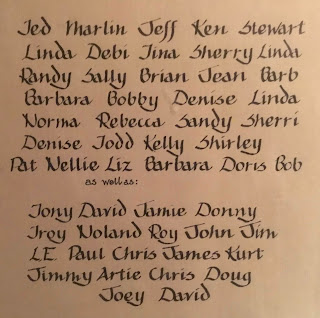 Ted Marlin Jeff Ken Stewart
Linda Debi Tina Sherry Linda
Randy Sally Brian Jean Barb
Barbara Bobby Denise Linda
Norma Rebecca Sandy Sherri
Denise Todd Kelly Shirley
Pat Nellie Liz Barbara Doris Bob
as well as:
Tony David Jamie Donny
Troy Noland Roy John Jim
LE Paul Chris James Kurt
Jimmy Artie Chris Doug
Joey David